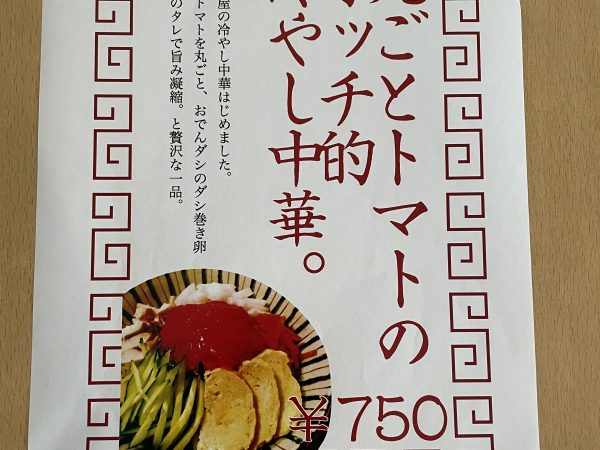 ごとトマトの
ッチ的
やし中華。
屋の冷やし中華はじめました。
トマトを丸ごと、おでんダシのダシ巻き卵
のタレで旨み凝縮。と贅沢な一品。
¥750